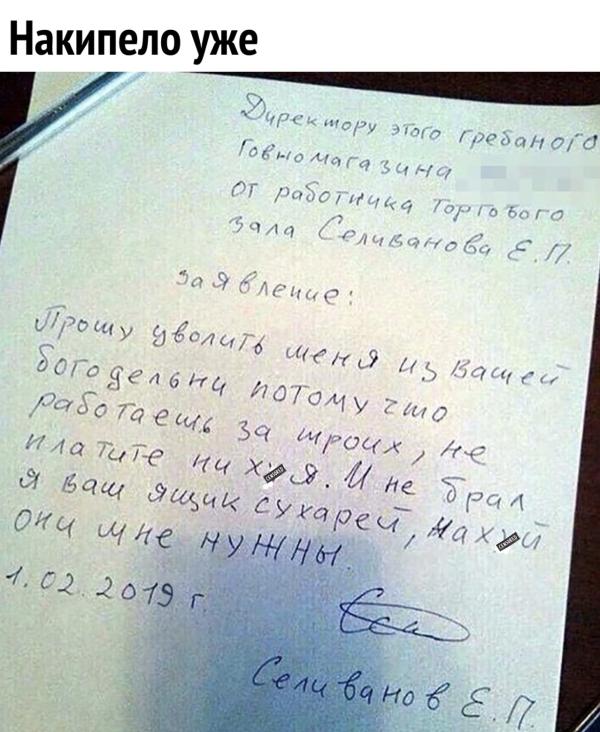 Накипело уже
Директору этого гребаного
Говномагазина
от работника торгового
зала Селиванова Е.П.
заявление:
Прошу уволить меня из вашей
богодельни потому что
работаешь за троих, не
платите них я. И не брал
я ваш ящик сухарей, нах й
они мне нужны.
1.02.2019 г.
Селиванов Е.П.